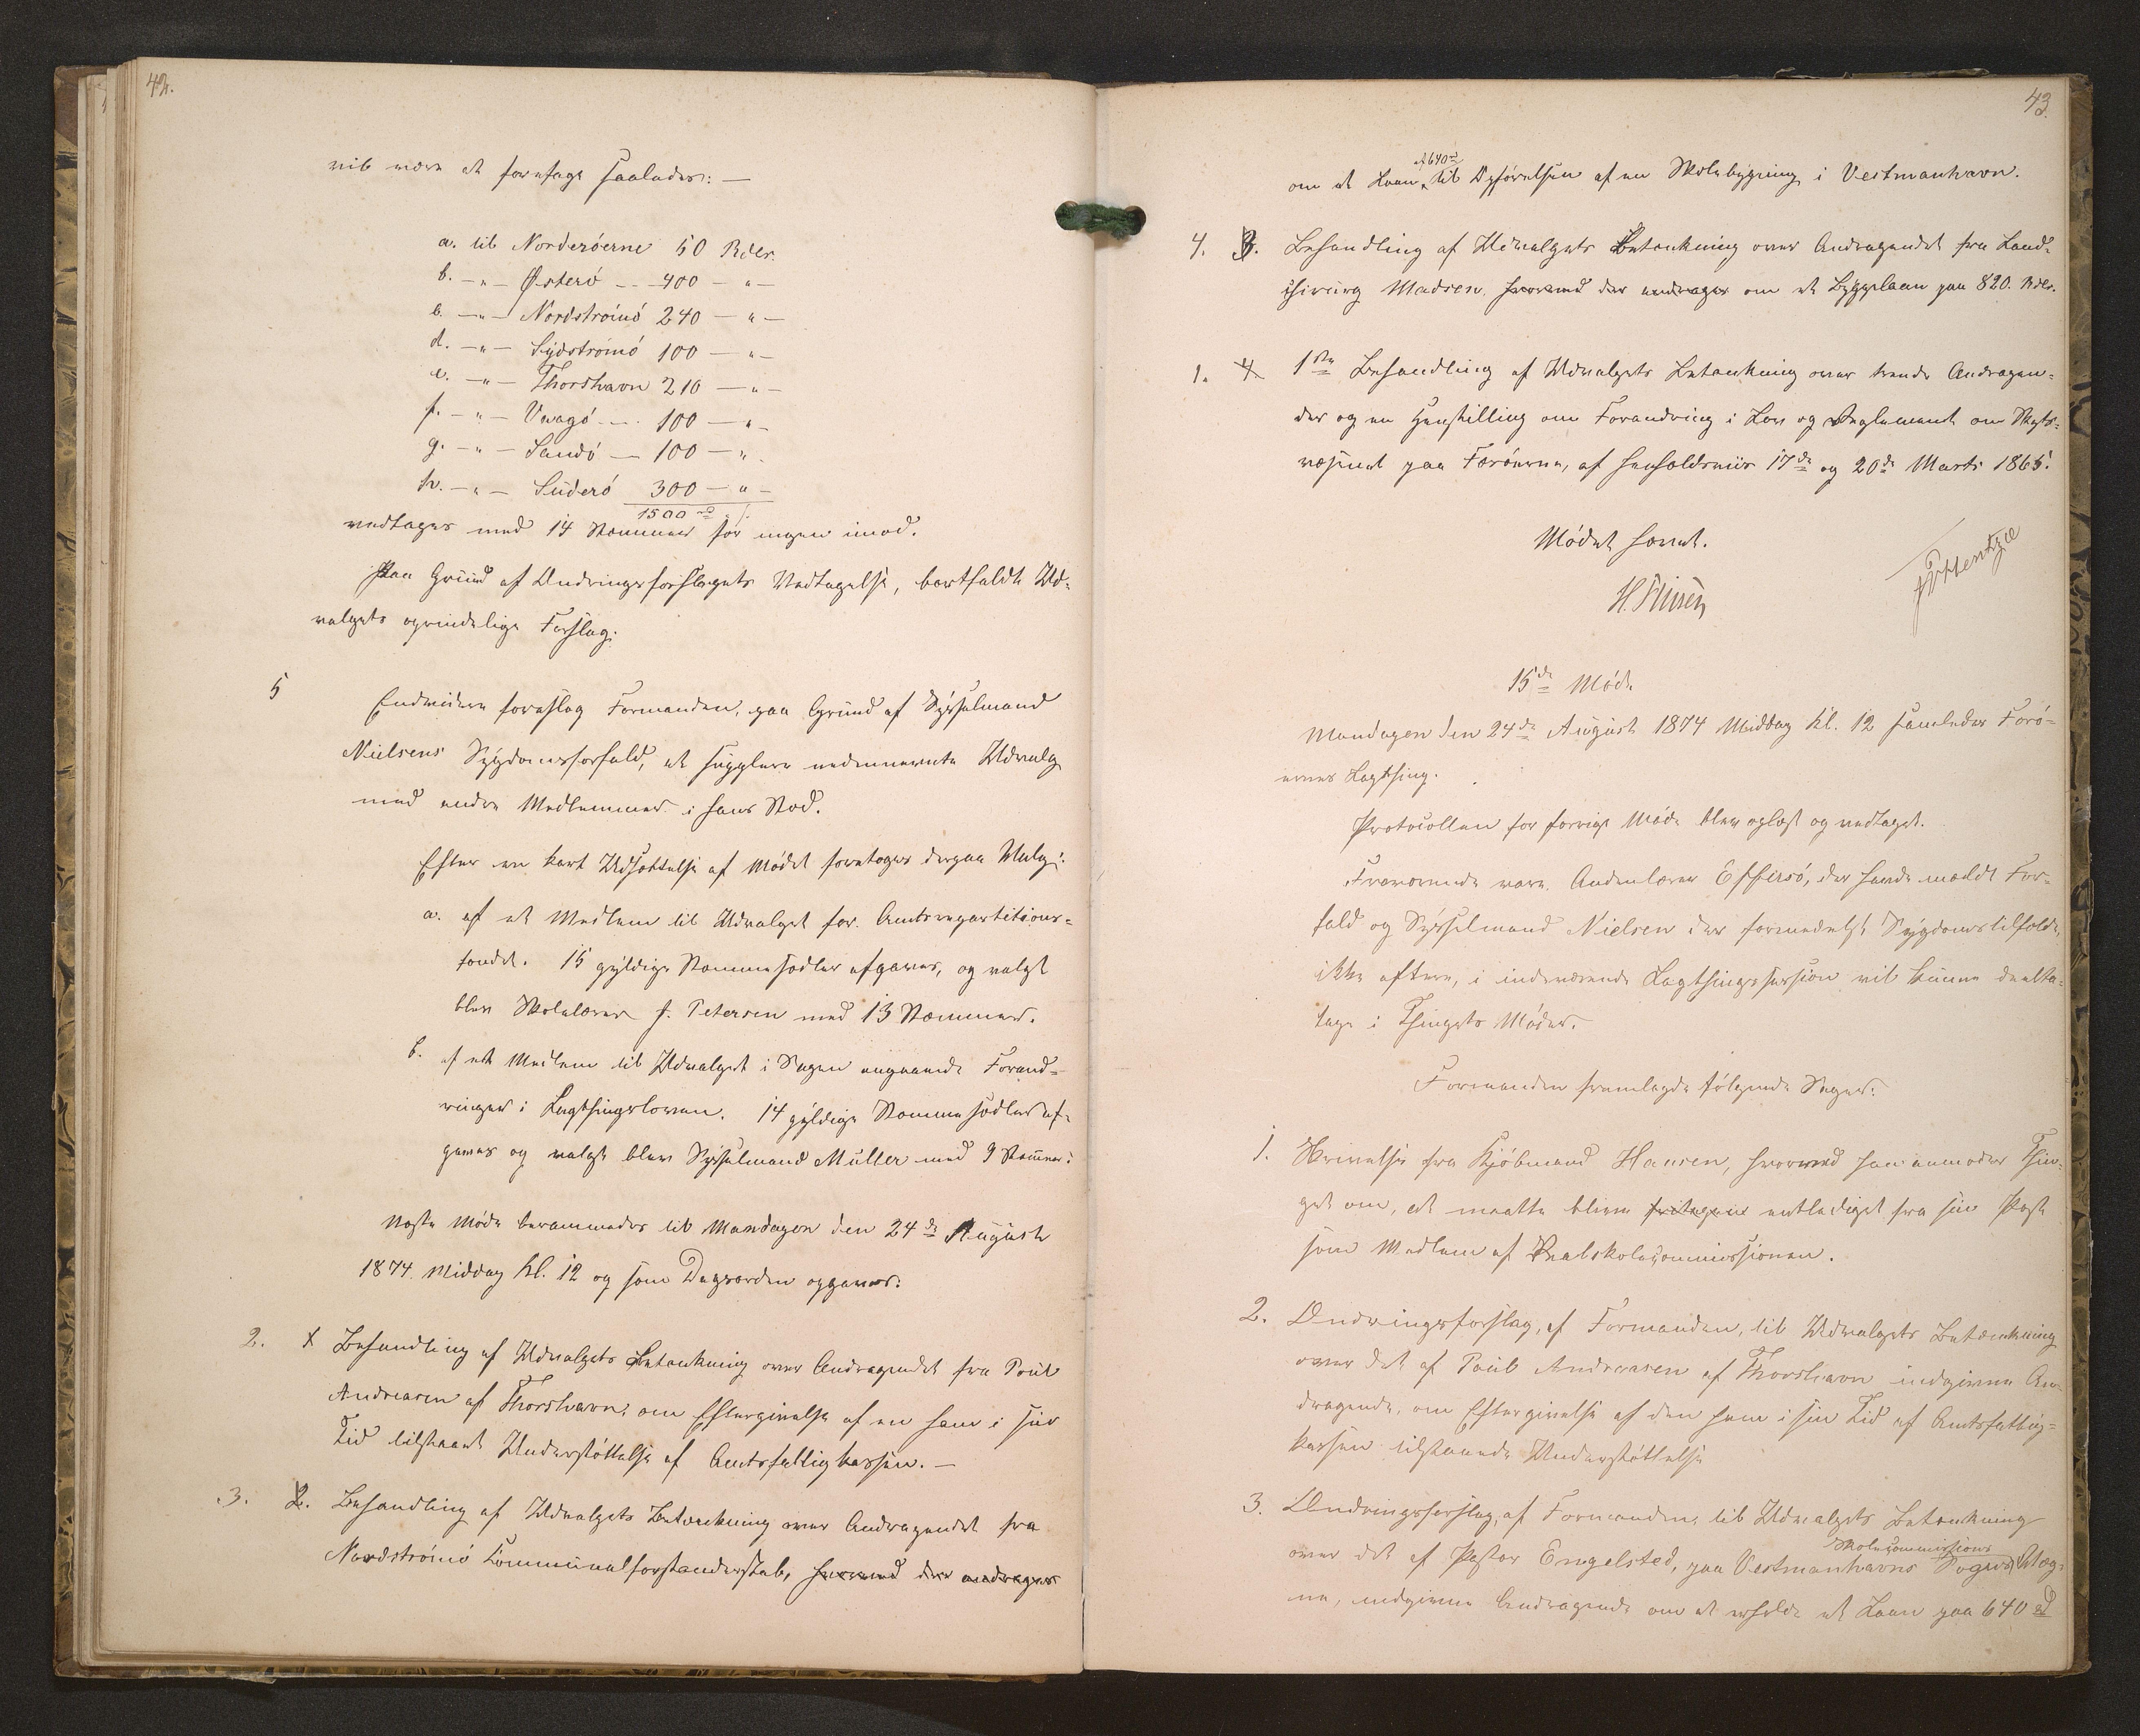 42.
vil være at foretage saaledes: —
a. til Norderøerne 50 Rdlr.
b. - " - Østerø - - 400 - " -
c. - " - Nordstrømø 240 - " -
d. - " - Sydstrømø 100 - " -
e. - " - Thorshavn 210 - " -
f. - " - Vaagø - - 100 - " -
g. - " - Sandø - 100 - " -
h. - " - Suderø 300 - " -
1500 rd " /.
vedtoges med 14 Stemmer for ingen imod.
Paa Grund af Ændringsforslagets Vedtagelse, bortfaldt Ud-
valgets oprindelige Forslag.
5 Endvidere foreslog Formanden, paa Grund af Sysselmand
Nielsens Sygdomsforfald, at supplere nedennævnte Udvalg
med andre Medlemmer i hans Sted.
Efter en kort Udsættelse af Mødet foretoges derpaa Valg:
a. af et Medlem til Udvalget for Amtsrepartitions-
fondet. 15 gyldige Stemmesedler afgaves, og valgt
blev Skolelærer J. Petersen med 13 Stemmer.
b. af et Medlem til Udvalget i Sagen angaaende Forand-
ringer i Lagthingsloven. 14 gyldige Stemmesedler af-
gaves og valgt blev Sysselmand Müller med 9 Stemmer.
Næste Møde berammedes til Mandagen den 24de August
1874 Middag Kl. 12 og som Dagsorden opgaves:
2. 1 Behandling af Udvalgets Betænkning over Andragendet fra Poul
Andreasen af Thorshavn, om Eftergivelse af en ham i sin
Tid tilstaaet Understøttelse af Amtsfattigkassen. —
3. 2. Behandling af Udvalgets Betænkning over Andragendet fra
Nordstrømø Communalforstanderskab, hvorved der andrages
43.
om et Laan af 640 rd til Opførelsen af en Skolebygning i Vestmanhavn.
4. 3. Behandling af Udvalgets Betænkning over Andragendet fra Land-
chirurg Madsen hvorved der andrages om et Byggelaan paa 820 Rdlr.
1. 4. 1ste Behandling af Udvalgets Betænkning over trende Andragen-
der og en Henstilling om Forandring i Lov og Reglement om Skyts-
væsenet paa Færøerne, af henholdsviis 17de og 20de Marts 1865.
Mødet hævet.
15de Møde
Mandagen den 24de August 1874 Middag Kl. 12 samledes Færø-
ernes Lagthing.
Protocollen for forrige Møde blev oplæst og vedtaget.
Fraværende vare Andenlærer Effersø, der havde meldt For-
fald og Sysselmand Nielsen, der formedelst Sygdomstilfælde,
ikke oftere, i indeværende Lagthingssession vil kunne deelta-
tage i Thingets Møder.
Formanden fremlagde følgende Sager:
1. Skrivelse fra Kjøbmand Hansen, hvorved han anmoder Thin-
get om, at maatte blive fritagen entlediget fra sin Post
som Medlem af Realskolecommissionen.
2. Ændringsforslag, af Formanden, til Udvalgets Betænkning
over det af Poul Andreasen af Thorshavn indgivne An-
dragende, om Eftergivelse af den ham i sin Tid af Amtsfattig-
kassen tilstaaede Understøttelse
3. Ændringsforslag, af Formanden, til Udvalgets Betænkning
over det af Pastor Engelsted, paa Vestmanhavns Sogns Skolecommissions Veg-
ne, indgivne Andragende om at erholde et Laan paa 640 rd